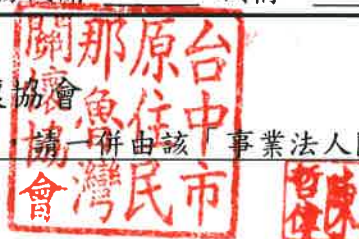 協會
請一併由該 事業法人
台中市
原住民
那魯灣
關懷協
會
哲偉